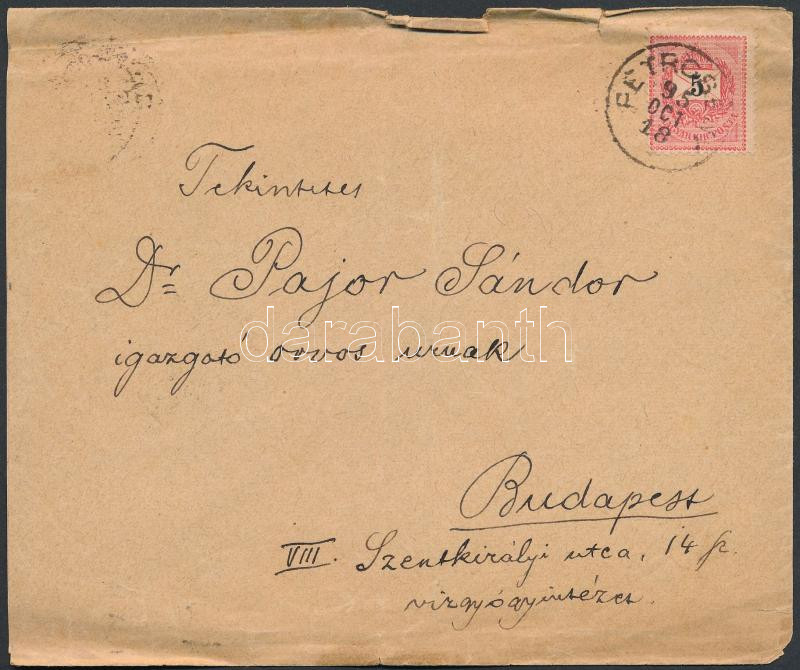 PETROSE
5
95
OCT
18
MAGYAR KIR. POSTA
Tekintetes
Dr Pajor Sándor
igazgató orvos urnak
darabanth
Budapest
VIII. Szentkirályi utca, 14 sz.
vizgyógyintézet.